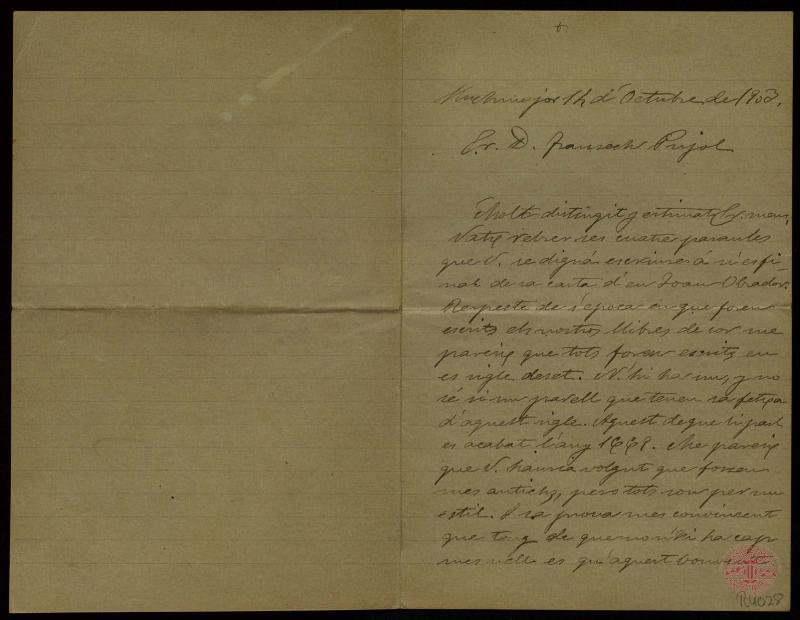 Lluchmajor 14 d'Octubre de 1903.
Sr. D. Francesch Pujol
Molt distingit y estimat Sr. meu,
Vatx rebrer ses cuatre paraules
que V. se digná escriurer á n'es fi-
nal de sa carta d'en Joan Obrador.
Respecte de s'época en que foren
escrits els nostros llibres de cor me
pareix que tots foren escrits en
es sigle deset. N'hi ha un, y no
sé si un parell que tenen sa fetxa
d'aquest sigle. Aquest de que li parl
es acabat l'any 1668. Me pareix
que V. hauria volgut que fossen
mes antichs, pero tots son per un
estil. Y sa prova mes convincent
que teng de que no n'hi ha cap
mes vell es qu'aquest convent
R4028